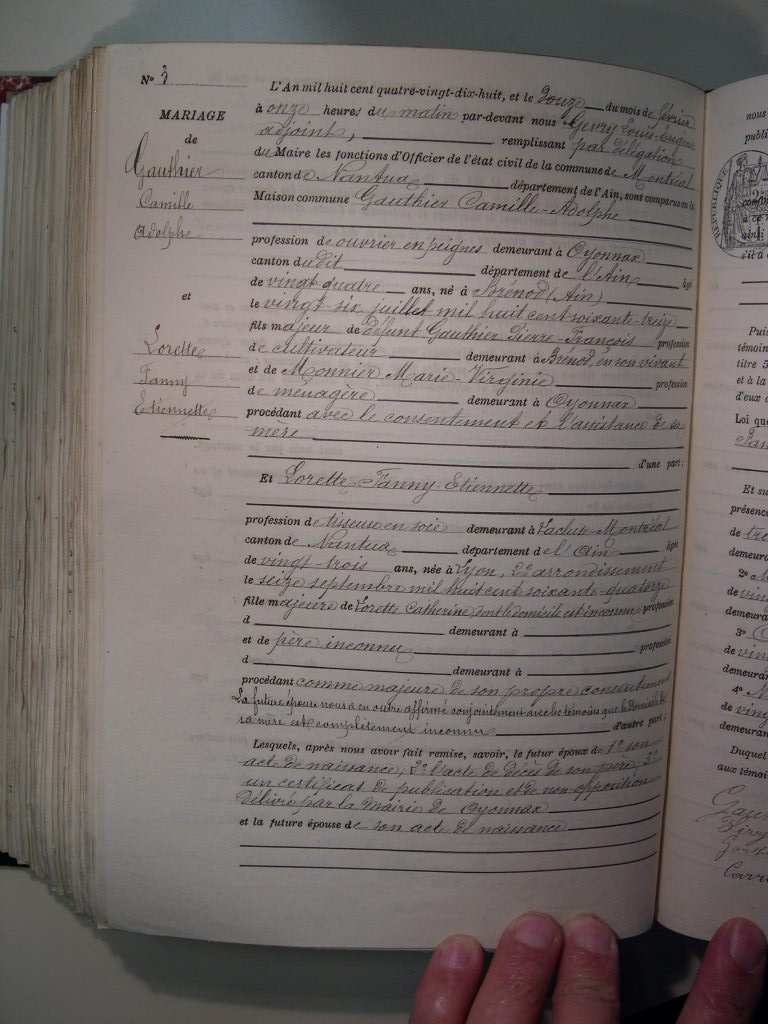 No 3
MARIAGE
de
Gauthier
Camille
Adolphe
et
Lorette
Fanny
Etiennette
L'An mil huit cent quatre-vingt-dix-huit, et le Douze du mois de février
à onze heures du matin par-devant nous Gevry Louis Eugène
adjoint, remplissant par délégation
du Maire les fonctions d'Officier de l'état civil de la commune de Montréal
canton de Nantua département de l'Ain, sont comparus en la
Maison commune Gauthier Camille-Adolphe
profession de ouvrier en peignes demeurant à Oyonnax
canton dudit département de l'Ain âgé
de vingt quatre ans, né à Brénod (Ain)
le vingt-six juillet mil huit cent soixante-treize
fils majeur de défunt Gauthier Pierre-François profession
de cultivateur demeurant à Brénod, en son vivant
et de Monnier Marie-Virginie profession
de ménagère demeurant à Oyonnax
procédant avec le consentement et l'assistance de sa
mère
d'une part;
Et Lorette Fanny-Etiennette
profession de tisseuse en soie demeurant à Lacluse-Montréal
canton de Nantua département de l'Ain âgée
de vingt-trois ans, née à Lyon, 2e arrondissement
le seize septembre mil huit cent soixante-quatorze
fille majeure de Lorette Catherine, dont le domicile est inconnu profession
d demeurant à
et de père inconnu profession
d demeurant à
procédant comme majeure de son propre consentement
La future épouse nous a en outre affirmé conjointement avec les témoins que le domicile de
sa mère est complètement inconnu d'autre part;
Lesquels, après nous avoir fait remise, savoir, le futur époux de 1° son
acte de naissance, 2° l'acte de décès de son père, 3°
un certificat de publication et de non-opposition
délivré par la mairie de Oyonnax
et la future épouse de son acte de naissance
nous
publi
RÉPUBLIQUE
à ce
ainsi
s'il a
Puis
témoin
titre 5
et à la
d'eux
Loi que
Et su
présence
de tre
demeura
2°
de ving
demeurant
3°
de vin
demeurant
4°
de ving
demeurant
Duquel
aux témoi